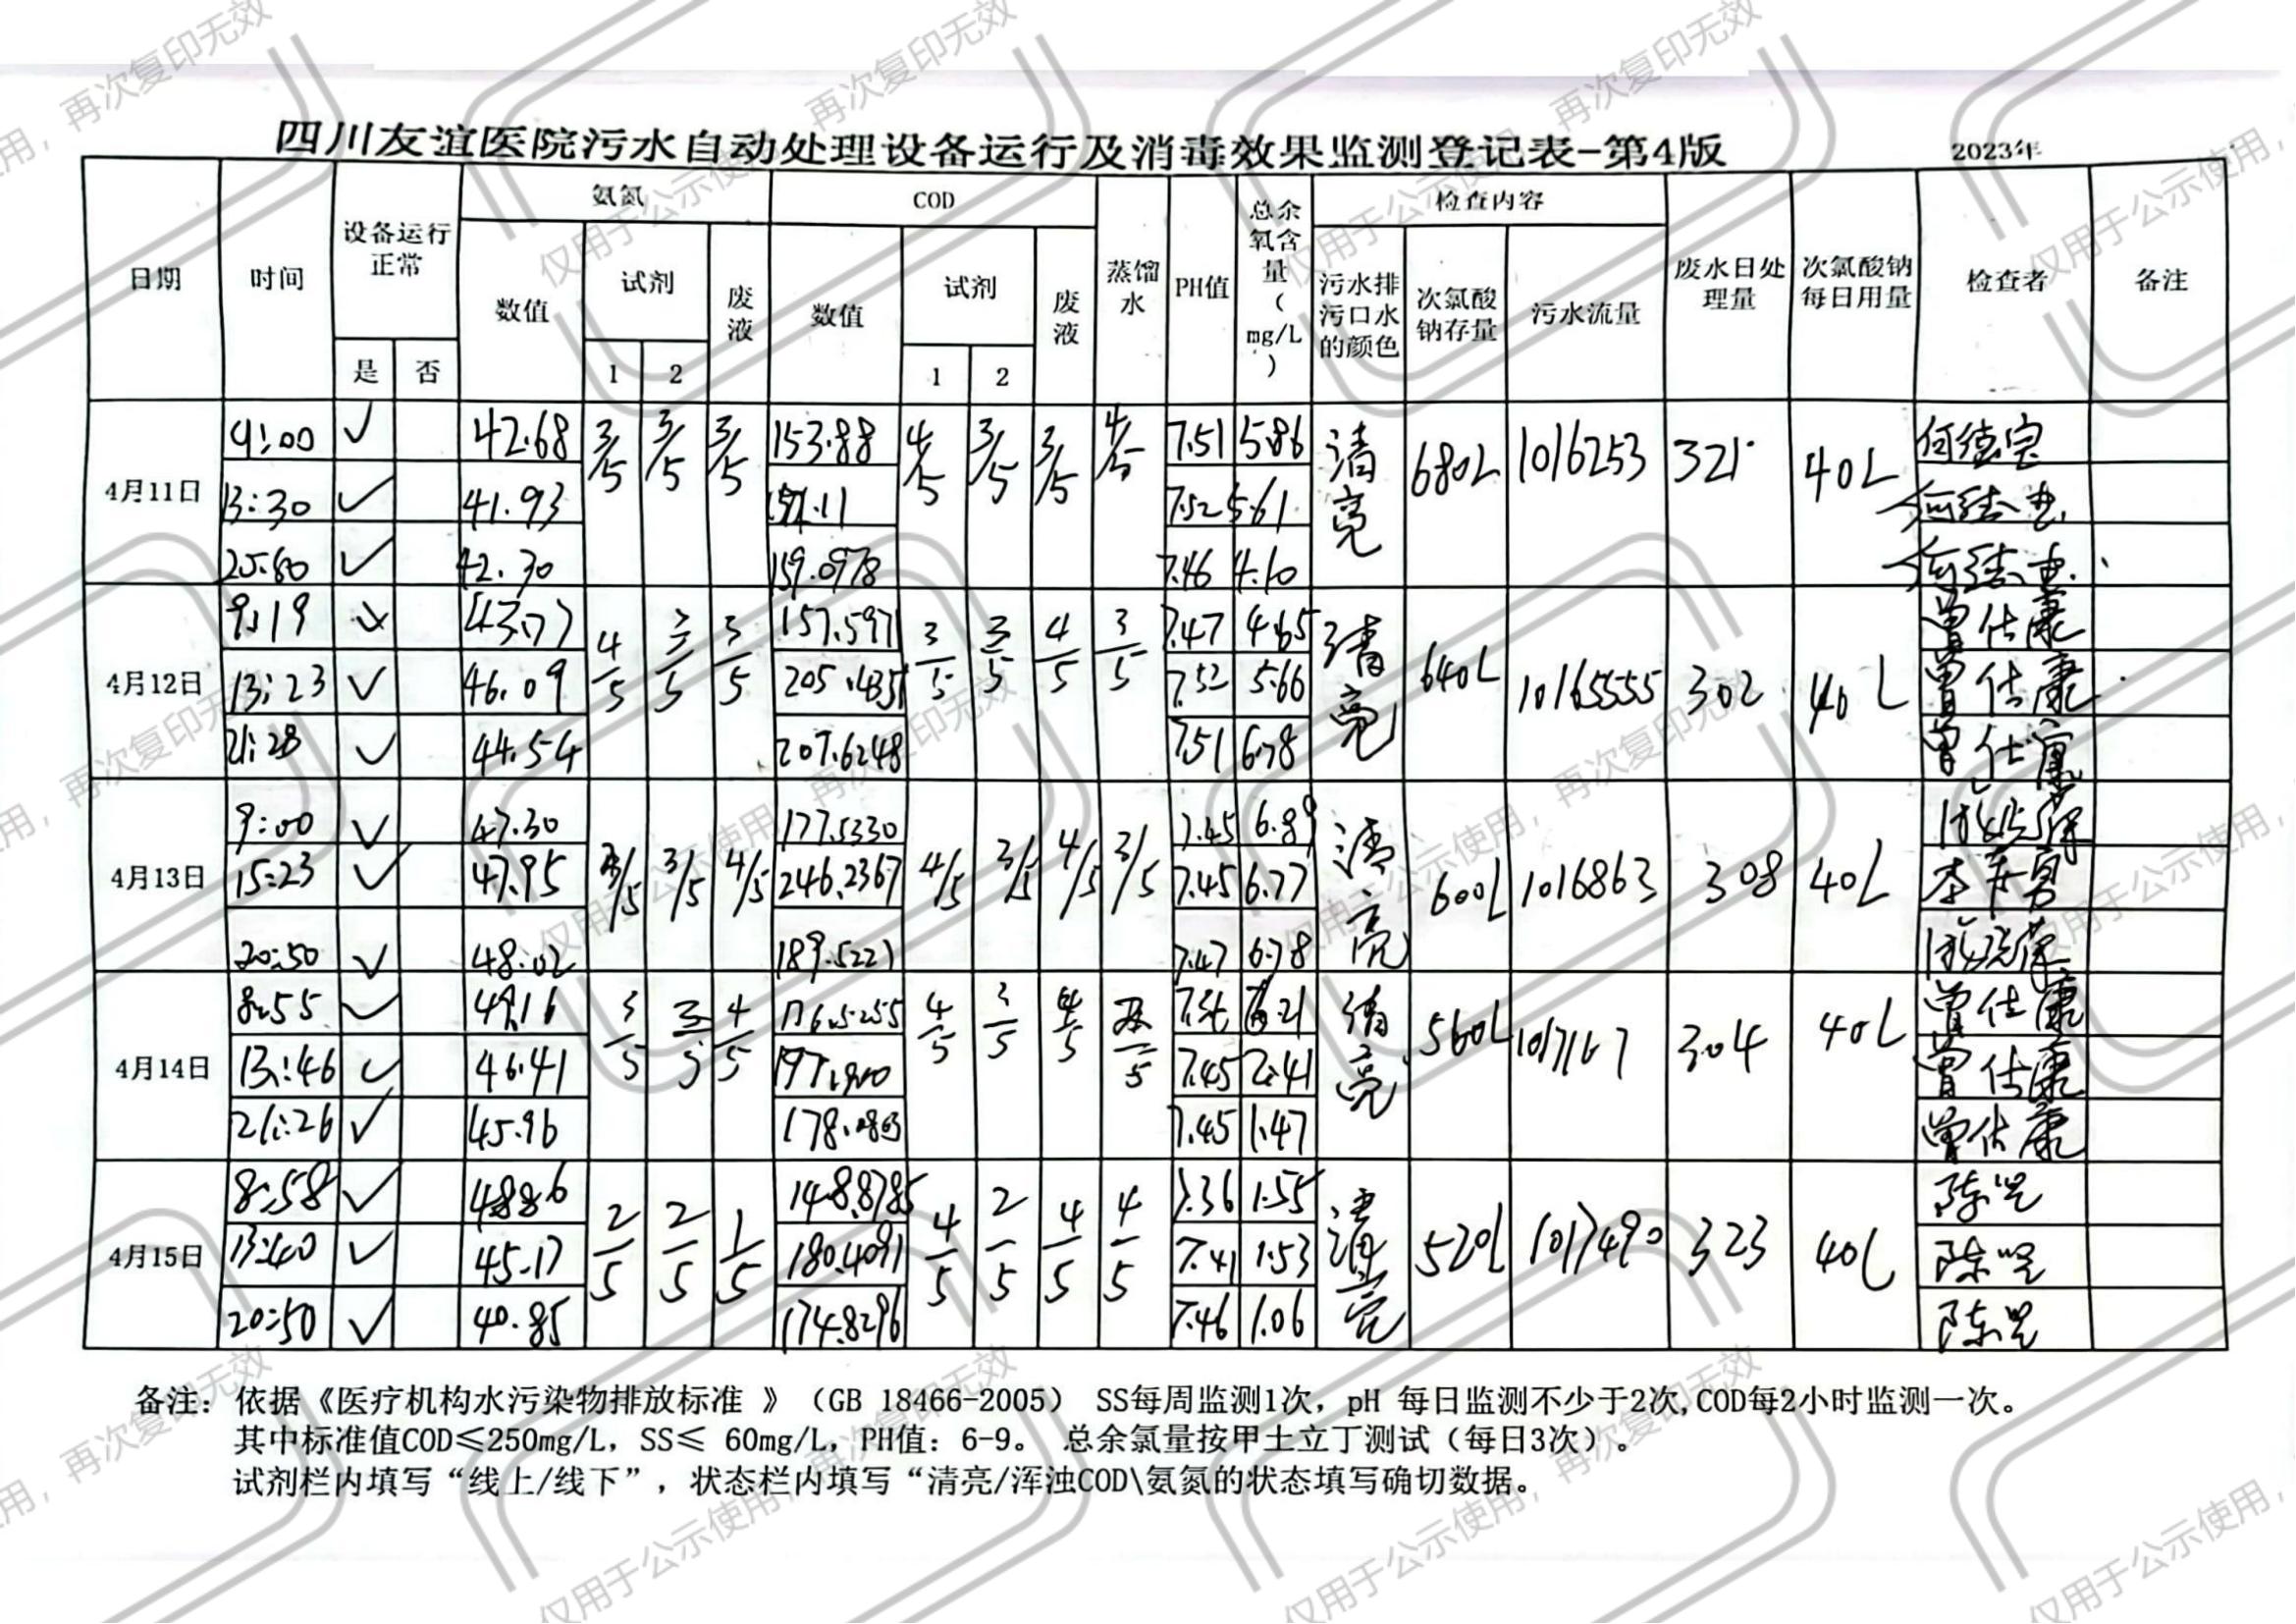 四川友谊医院污水自动处理设备运行及消毒效果监测登记表-第4版 2023年
日期 时间 设备运行正常 氨氮 COD 蒸馏水 PH值 总余氧含量(mg/L) 检查内容 废水日处理量 次氯酸钠每日用量 检查者 备注
数值 试剂 废液 数值 试剂 废液 污水排污口水的颜色 次氯酸钠存量 污水流量
是 否 1 2 1 2
4月11日 9:00 ✓ 42.68 3/5 3/5 3/5 153.88 4/5 3/5 3/5 4/5 7.51 5.86 清亮 680L 1016253 321 40L
13:30 ✓ 41.93 7.52 5.61
✓ 42.30 159.0978 7.46 4.10
4月12日 9:19 ✓ 43.77 4/5 3/5 3/5 157.5971 3/5 3/5 4/5 3/5 7.47 4.65 清亮 640L 10165555 302 40L 曾仕康
13:23 ✓ 46.09 205.4351 7.52 5.66 曾仕康
21:28 ✓ 44.54 207.6248 7.51 6.78 曾仕康
4月13日 9:00 ✓ 47.30 3/5 3/5 4/5 177.5330 4/5 3/5 4/5 3/5 7.45 6.89 清亮 600L 1016863 308 40L
15:23 ✓ 47.95 246.2367 7.45 6.77
20:50 ✓ 48.02 189.5221 7.47 6.78
4月14日 8:55 ✓ 49.16 3/5 3/5 4/5 176.5255 4/5 3/5 4/5 清亮 560L 1017167 304 40L 曾仕康
13:46 ✓ 46.41 7.45 2.41 曾仕康
21:26 ✓ 45.96 7.45 1.47 曾仕康
4月15日 8:58 ✓ 48.86 2/5 2/5 1/5 148.8785 4/5 2/5 4/5 4/5 7.36 1.55 清亮 520L 1017490 323 40L
13:40 ✓ 45.17 180.4091 7.41 1.53
20:50 ✓ 40.85 174.8296 7.46 1.06
备注：依据《医疗机构水污染物排放标准 》（GB 18466-2005） SS每周监测1次，pH 每日监测不少于2次,COD每2小时监测一次。
其中标准值COD≤250mg/L，SS≤ 60mg/L，PH值：6-9。 总余氯量按甲土立丁测试（每日3次）。
试剂栏内填写“线上/线下”，状态栏内填写“清亮/浑浊COD\氨氮的状态填写确切数据。
仅用于公示使用，再次复印无效